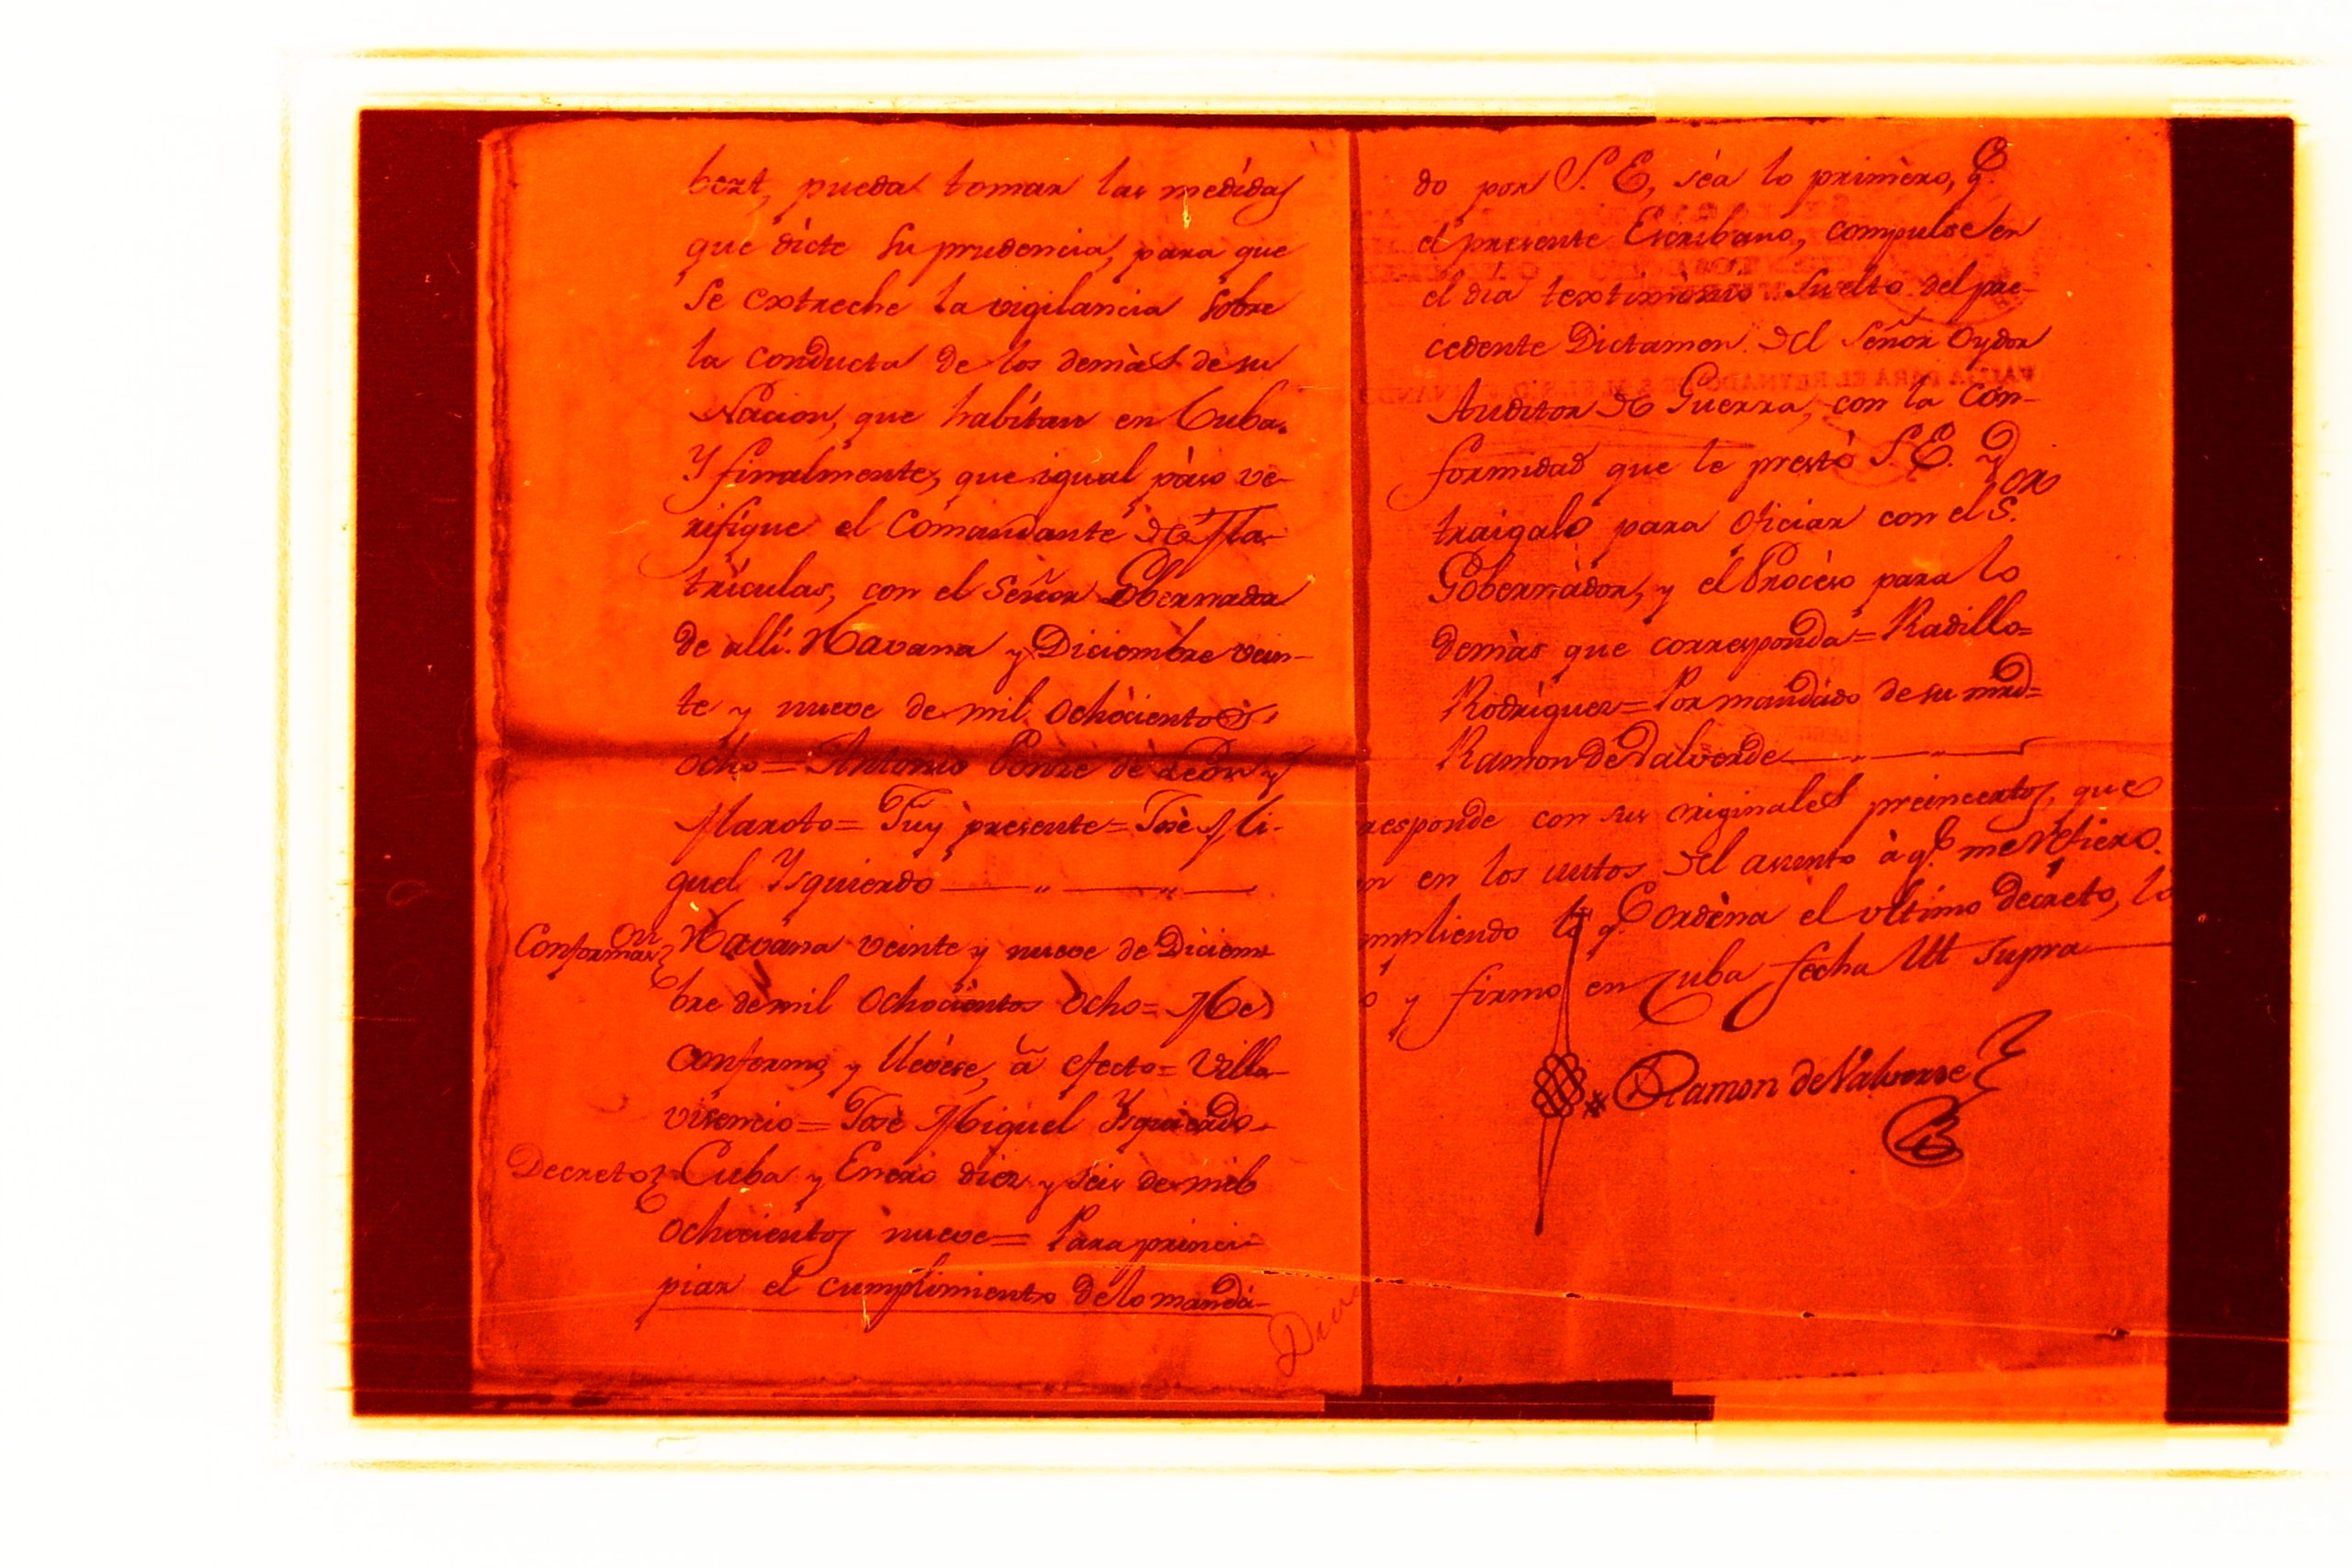 bert, pueda tomar las medidas
que dicte su prudencia, para que
se extreche la vigilancia sobre
la conducta de los demàs de su
Nacion, que habitan en Cuba.
Y finalmente, que igual pàso ve-
rifique el Comandante de Ma-
trìculas, con el Señor Gobernador
de alli. Havana y Diciembre vein-
te y nueve de mil ochòcientos
ocho = Antonio Ponze de Leon y
Maroto = Fuy presente = Josè Mi-
guel Ysquierdo
Conforman.on Havana veinte y nueve de Diciem-
bre de mil ochocientos ocho = Me
conformo, y llevese, à efecto = Villa-
vicencio = Josè Miguel Ysquierdo
Decreto Cuba y Enero diez y seis de mil
ochocientos nueve = Para princi-
piar el cumplimiento de lo manda-
do por S. E., séa lo primèro, q.e
el presente Escribano, compulse en
el dia textimonio suelto del pre-
cedente Dictamen del Señor Oydor
Auditor de Guerra, con la Con-
formidad que le prestò S. E. y
traigalo para oficiar con el S.or
Gobernàdor, y el Procèso para lo
demàs que corresponda = Radillo =
Rodrìguez = Por mandàdo de su mrd =
Ramon de Valverde
responde con sus originales preincertos, que
n en los autos del asunto à q.e me refiero.
mpliendo lo q.e ordèna el ultimo decreto, lo
o y firmo en Cuba fecha Ut supra
Ramon de Valverde